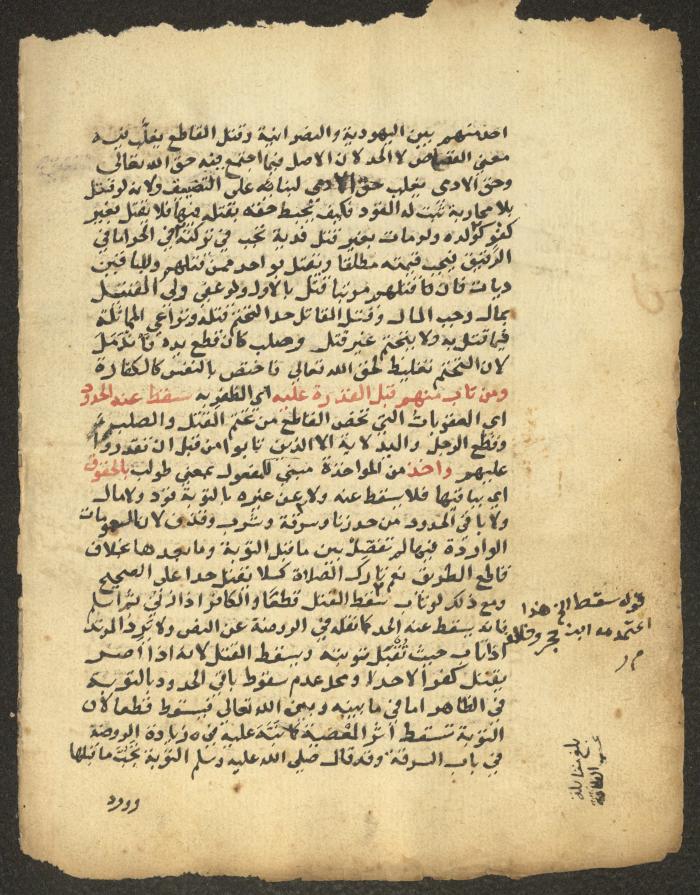 احد منهم بين اليهودية والنصرانية وقتل القاطع يغلب فيه
معنى القصاص لا الحد لان الاصل فيما اجتمع فيه حق الله تعالى
وحق الادمى يغلب حق الادمى لبنائه على التضييق ولانه لو قتل
بلا محاربة ثبت له القود فكيف يحبط حقه بقتله فيها فلا يقتل بغير
كفؤ كولده ولو مات بغير قتل فدية تجب في تركته في الحر اما في
الرقيق فيجب قيمته مطلقا ويقتل بواحد ممن قتلهم وللباقين
ديات فان قتلهم مرتبا قتل بالاول ولو عفى ولي القتيل
بمال وجب المال وقتل القاتل حدا لتحتم قتله وتراعي المماثلة
فيما قتل به ولا يتحتم غير قتل وصلب كان قطع يده فاندمل
لان التحتم تغليظ لحق الله تعالى فاختص بالنفس كالكفارة
ومن تاب منهم قبل القدرة عليه اي الظفر به سقط عنه الحدود
اي العقوبات التي تخص القاطع من تحتم القتل والصلب
وقطع الرجل واليد لاية الا الذين تابوا من قبل ان تقدروا
عليهم واخذ من المواخذة مبني للمفعول بمعني طولب بالحقوق
اي بباقيها فلا يسقط عنه ولا عن غيره بالتوبة قود ولا مال
ولا باقي الحدود من حد زنا وسرقة وشرب وقذف لان العمومات
الواردة فيها لم تفصل بين ما قبل التوبة وما بعدها بخلاف
قاطع الطريق نعم تارك الصلاة كسلا يقتل حدا على الصحيح
ومع ذلك لو تاب سقط القتل قطعا والكافر اذا زني ثم اسلم
فانه يسقط عنه الحد كما نقله في الروضة عن النص ولا يرد المرتد
اذا تاب حيث تقبل توبته ويسقط القتل لانه اذا اصر
يقتل كفرا لا حدا ومحل عدم سقوط باقي الحدود بالتوبة
في الظاهر اما في ما بينه وبين الله تعالى فيسقط قطعا لان
التوبة تسقط اثر المعصية كما نبه عليه في زيادة الروضة
في باب السرقة وقد قال صلي الله عليه وسلم التوبة تجب ما قبلها
وورد
قوله سقط الخ هذا
اعتمده ابن حجر وخالفه
م ر
بلغ مقابلة
حسب الطاقة